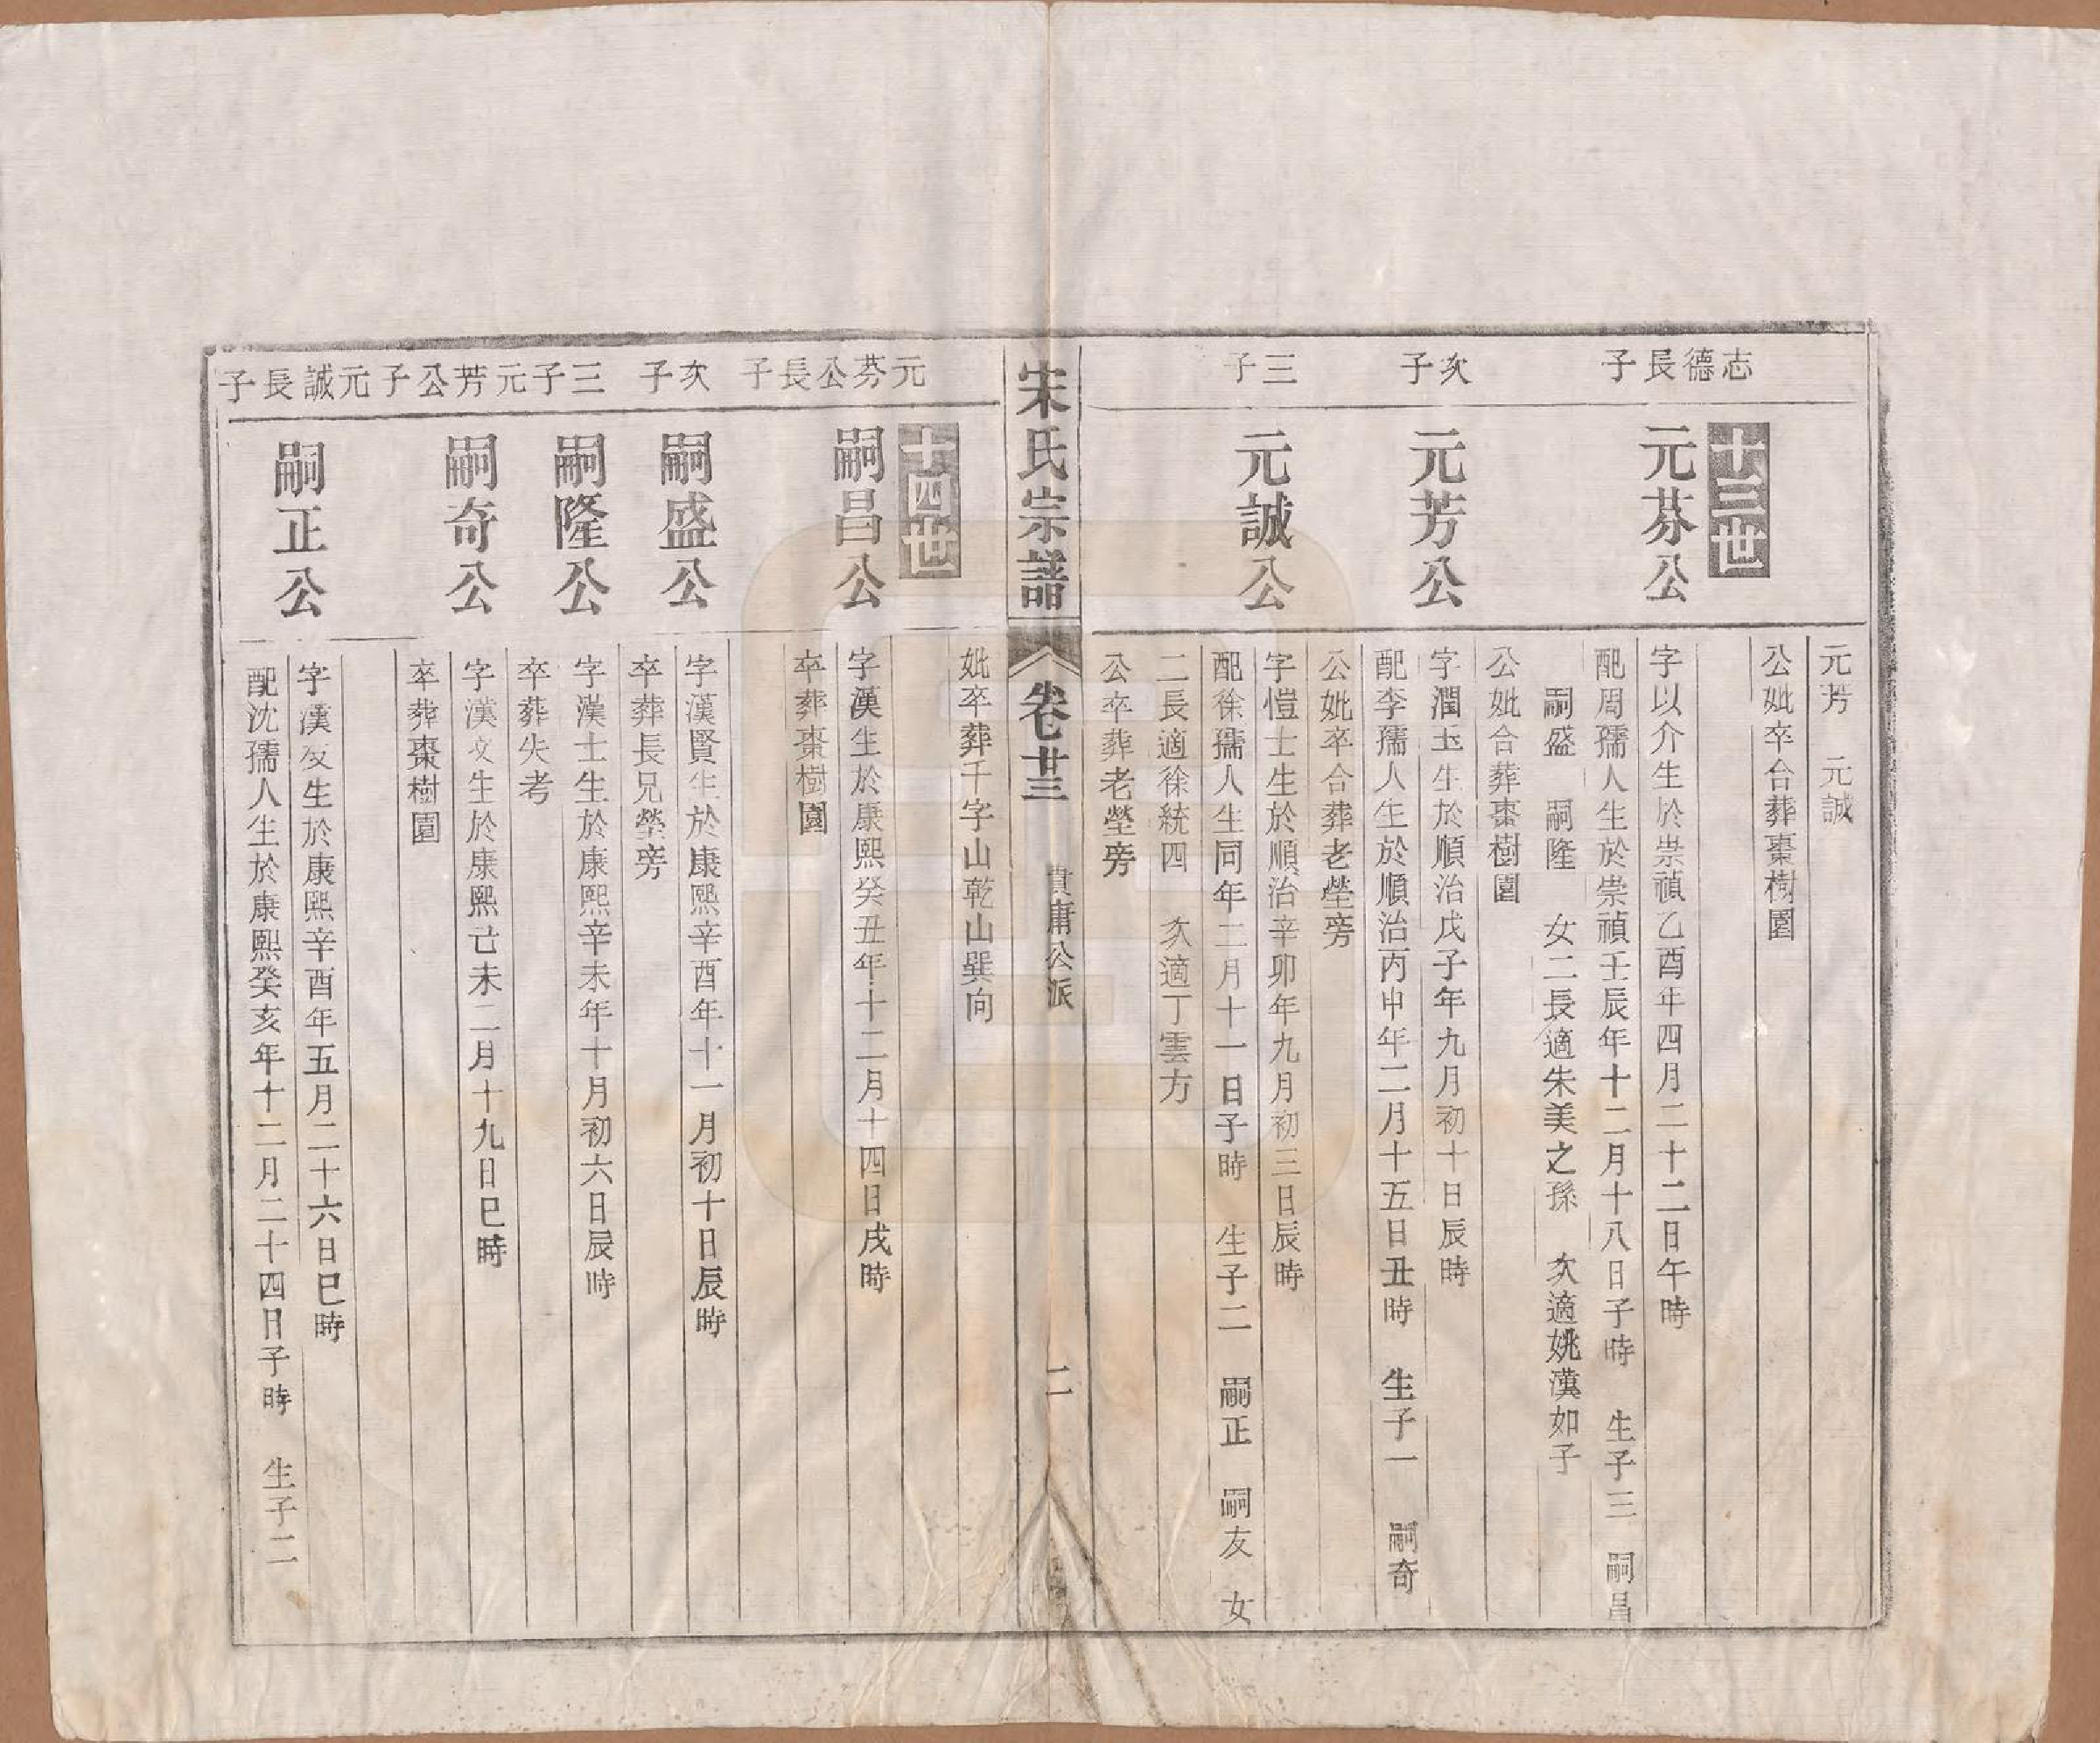 元芳　元誠
公妣卒合葬棗樹園
十三世
志德長子
元芬公
字以介生於崇禎乙酉年四月二十二日午時
配周孺人生於崇禎壬辰年十二月十八日子時　生子三　嗣昌
嗣盛　嗣隆　女二長適朱美之孫　次適姚漢如子
公妣合葬棗樹園
次子
元芳公
字潤玉生於順治戊子年九月初十日辰時
配李孺人生於順治丙申年二月十五日丑時　生子一　嗣奇
公妣卒合葬老塋旁
三子
元誠公
字愷士生於順治辛卯年九月初三日辰時
配徐孺人生同年二月十一日子時　生子二　嗣正　嗣友　女
二長適徐統四　次適丁雲方
公卒葬老塋旁
宋氏宗譜
卷廿三
貫庸公派
二
妣卒葬千字山乾山巽向
十四世
元芬公長子
嗣昌公
字漢生於康熙癸丑年十二月十四日戌時
卒葬棗樹園
次子
嗣盛公
字漢賢生於康熙辛酉年十一月初十日辰時
卒葬長兄塋旁
三子
嗣隆公
字漢士生於康熙辛未年十月初六日辰時
卒葬失考
元芳公子
嗣奇公
字漢文生於康熙己未二月十九日巳時
卒葬棗樹園
元誠長子
嗣正公
字漢友生於康熙辛酉年五月二十六日巳時
配沈孺人生於康熙癸亥年十二月二十四日子時　生子二